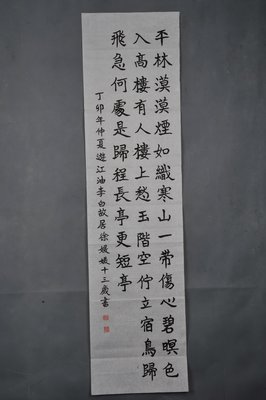 平林漠漠煙如織寒山一帶傷心碧暝色
入高樓有人樓上愁玉階空佇立宿鳥歸
飛急何處是歸程長亭更短亭
丁卯年仲夏遊江油李白故居徐媛媛十三歲書